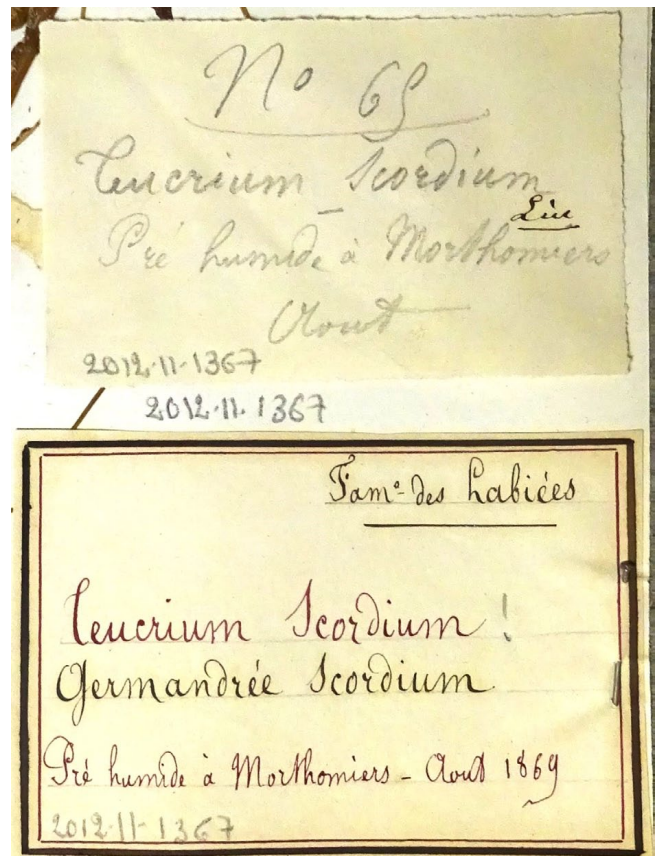 No 69
Teucrium Scordium
Lin
Pré humide à Morthomiers
Aout
2012.11.1367
2012.11.1367
Fam.e des Labiées
Teucrium Scordium !
Germandrée Scordium
Pré humide à Morthomiers - Aout 1869
2012.11.1367